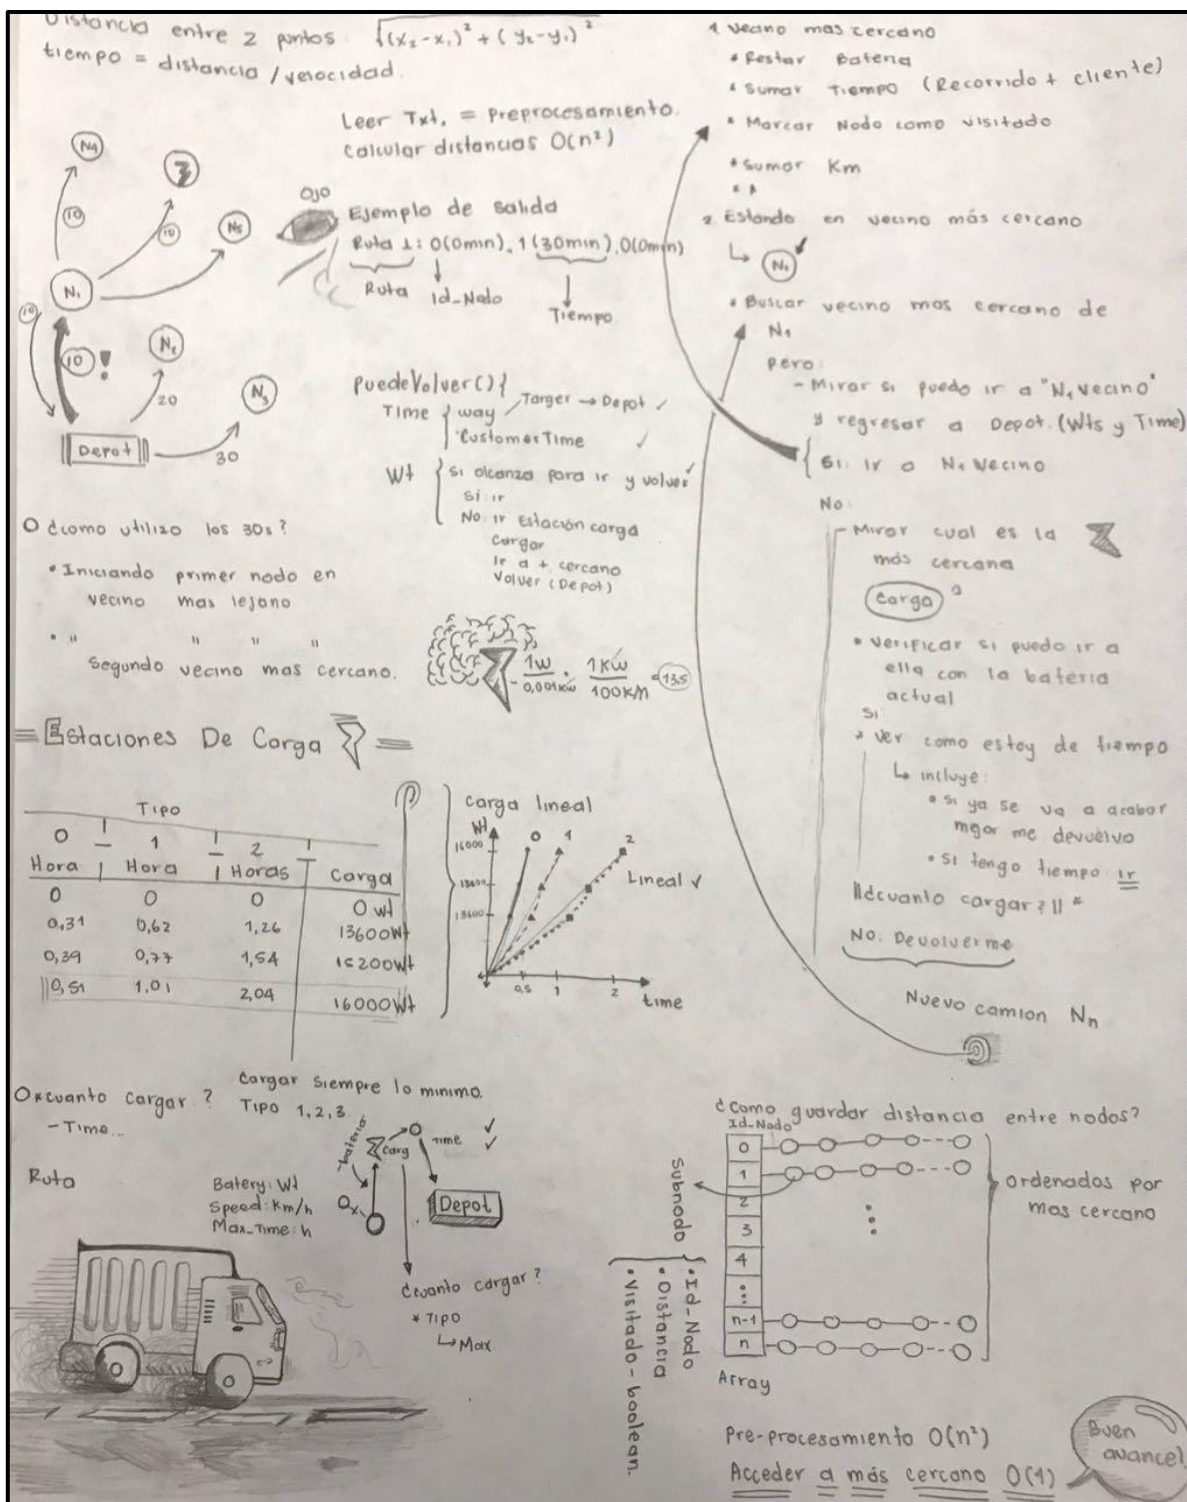 Distancia entre 2 puntos √(x₂-x₁)² + (y₂-y₁)²
tiempo = distancia / velocidad.
Leer Txt, = Preprocesamiento.
Calcular distancias O(n²)
N4
10
10
N5
N1
10
10 !
N2
20
N3
30
Depot
Ojo
Ejemplo de salida
Ruta 1: 0(0min), 1(30min), 0(0min)
Ruta
Id_Nodo
Tiempo
PuedeVolver(){
Time
way
Targer → Depot ✓
CustomerTime ✓
Wt
Si alcanza para ir y volver ✓
Si: ir
No: ir Estación carga
Cargar
Ir a + cercano
Volver (Depot)
O ¿Como utilizo los 30s?
• Iniciando primer nodo en
vecino mas lejano
• " " " "
Segundo vecino mas cercano.
1W / 0,001KW . 1KW / 100KM = 135
= Estaciones De Carga =
Tipo
0 1 2
Hora Hora Horas Carga
0 0 0 0 Wt
0,31 0,62 1,26 13600Wt
0,39 0,77 1,54 15200Wt
0,51 1,01 2,04 16000Wt
Carga lineal
Wt
0 1 2
16000
13600
Lineal ✓
0,5 1 2
time
O*cuanto cargar?
- Time...
Cargar siempre lo minimo.
Tipo 1,2,3
bateria
carg
Time ✓
✓
Depot
Ruta
Batery: Wt
Speed: Km/h
Max_Time: h
¿cuanto cargar?
* Tipo
↳ Max
1. Vecino mas cercano
* Restar Bateria
* Sumar Tiempo (Recorrido + cliente)
* Marcar Nodo como visitado
* Sumar Km
2. Estando en vecino más cercano
↳ N1
* Buscar vecino mas cercano de
N1
pero:
- Mirar si puedo ir a "N1 vecino"
y regresar a Depot. (Wts y Time)
Si: ir a N1 Vecino
No:
- Mirar cual es la
más cercana
Carga
* Verificar si puedo ir a
ella con la bateria
actual
Si
* Ver como estoy de tiempo
↳ incluye:
• Si ya se va a acabar
mejor me devuelvo
• Si tengo tiempo ir
||¿cuanto cargar?|| *
No: Devolverme
Nuevo camion Nn
¿Como guardar distancia entre nodos?
Id_Nodo
0
1
2
3
4
...
n-1
n
Array
Subnodo
• Id-Nodo
• Distancia
• Visitado - boolean.
ordenados por
mas cercano
Pre-procesamiento O(n²)
Acceder a más cercano O(1)
Buen
avance!